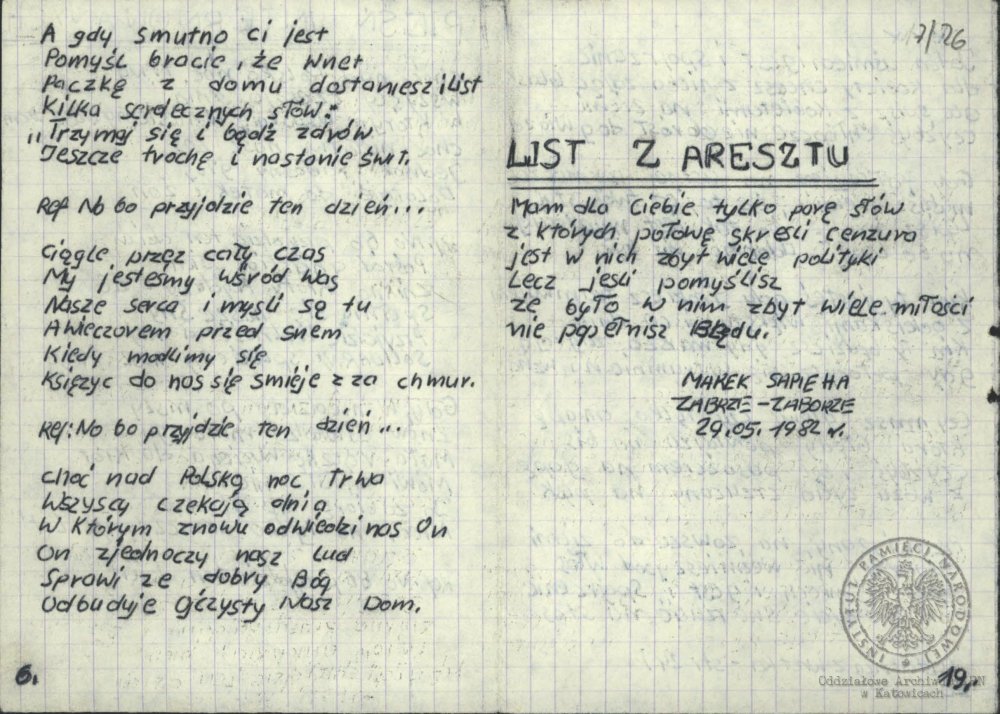 A gdy smutno ci jest
Pomyśl bracie, że wnet
Paczkę z domu dostaniesz i list
Kilka serdecznych słów:
„Trzymaj się i bądź zdrów
Jeszcze trochę i nastanie świt.
Ref No bo przyjdzie ten dzień...
Ciągle przez cały czas
My jesteśmy wśród was
Nasze serca i myśli są tu
A wieczorem przed snem
Kiedy modlimy się
Księżyc do nas się śmieje z za chmur.
Ref: No bo przyjdzie ten dzień...
Choć nad Polską noc Trwa
Wszyscy czekają dnia
W którym znowu odwiedzi nas On
On zjednoczy nasz Lud
Sprawi ze dobry Bóg
Odbuduje Ojczysty Nasz Dom.
6.
17/26
LIST Z ARESZTU
Mam dla Ciebie tylko parę słów
z których połowę skreśli cenzura
jest w nich zbyt wiele polityki
Lecz jeśli pomyślisz
że było w nim zbyt wiele miłości
nie popełnisz Błędu.
MAREK SAPIEHA
ZABRZE-ZABORZE
29.05.1982 r.
INSTYTUT PAMIĘCI NARODOWEJ
Oddziałowe Archiwum IPN
w Katowicach
19.